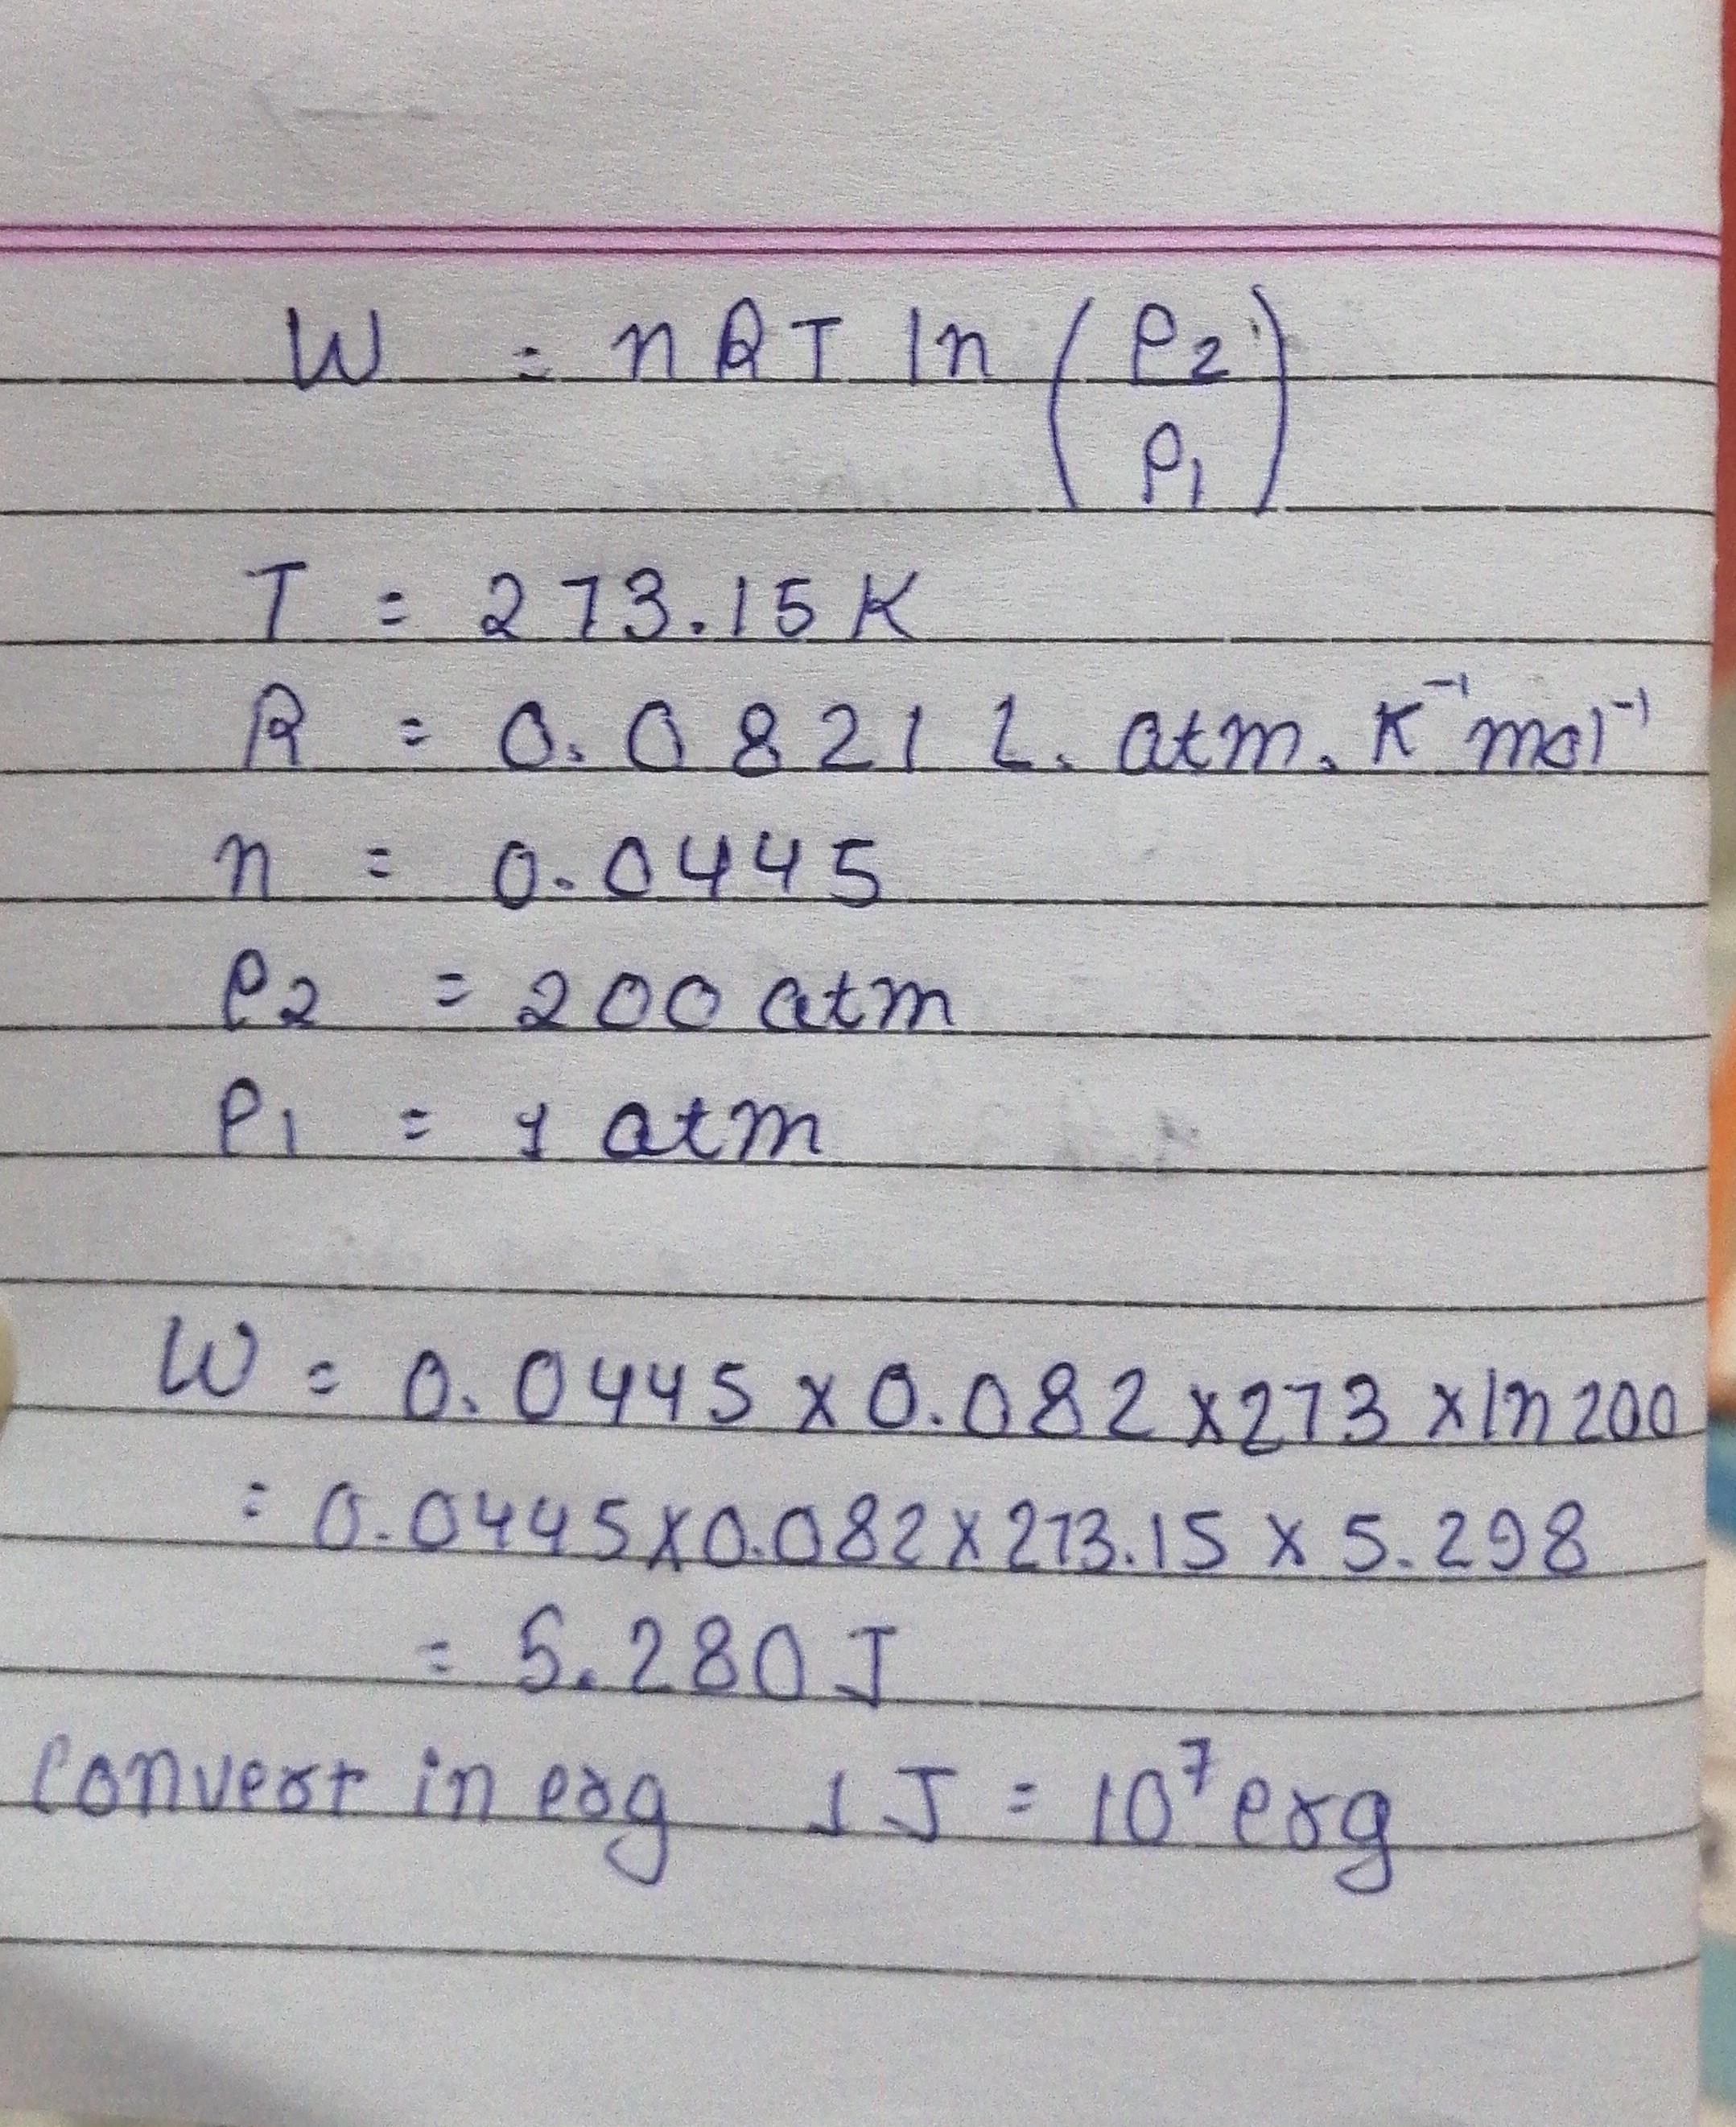 W = nRT ln (P2
P1)
T = 273.15 K
R = 0.0821 L. atm. K⁻¹ mol⁻¹
n = 0.0445
P2 = 200 atm
P1 = 1 atm
W = 0.0445 x 0.082 x 273 x ln 200
= 0.0445 x 0.082 x 273.15 x 5.298
= 5.280 J
Convert in erg 1 J = 10⁷ erg